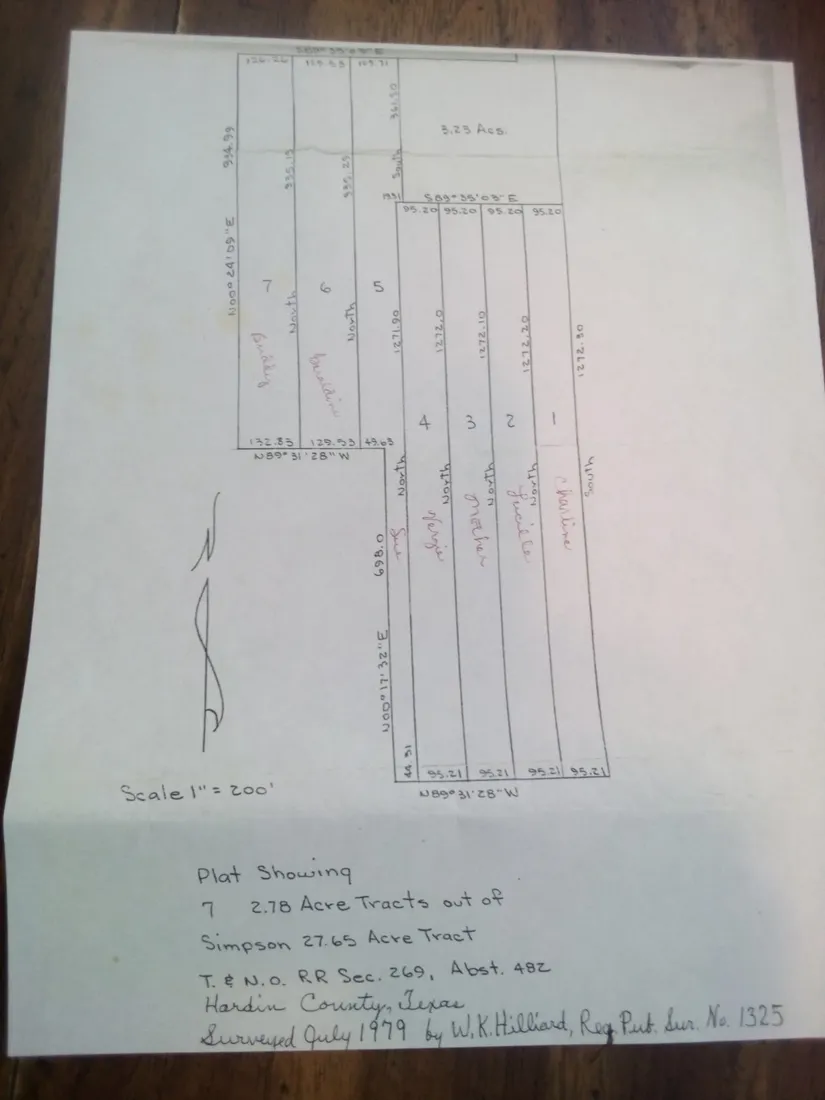 S89°35'03"E
126.26 129.53 109.71
934.99
935.15
935.25
361.30
South
3.23 Acs.
1331
S89°35'03"E
95.20 95.20 95.20 95.20
N00°24'09"E
7
6
5
North
North
1271.90
1272.0
1272.10
1272.20
1272.30
4
3
2
1
Geraldine
132.83 129.53 49.63
N89°31'28"W
North
North
North
North
South
Sue
Margie
Charline
698.0
N00°17'32"E
44.51
95.21 95.21 95.21 95.21
N89°31'28"W
Scale 1" = 200'
Plat Showing
7 2.78 Acre Tracts out of
Simpson 27.65 Acre Tract
T. & N.O. RR Sec. 269, Abst. 482
Hardin County, Texas
Surveyed July 1979 by W.K. Hilliard, Reg. Pub. Sur. No. 1325